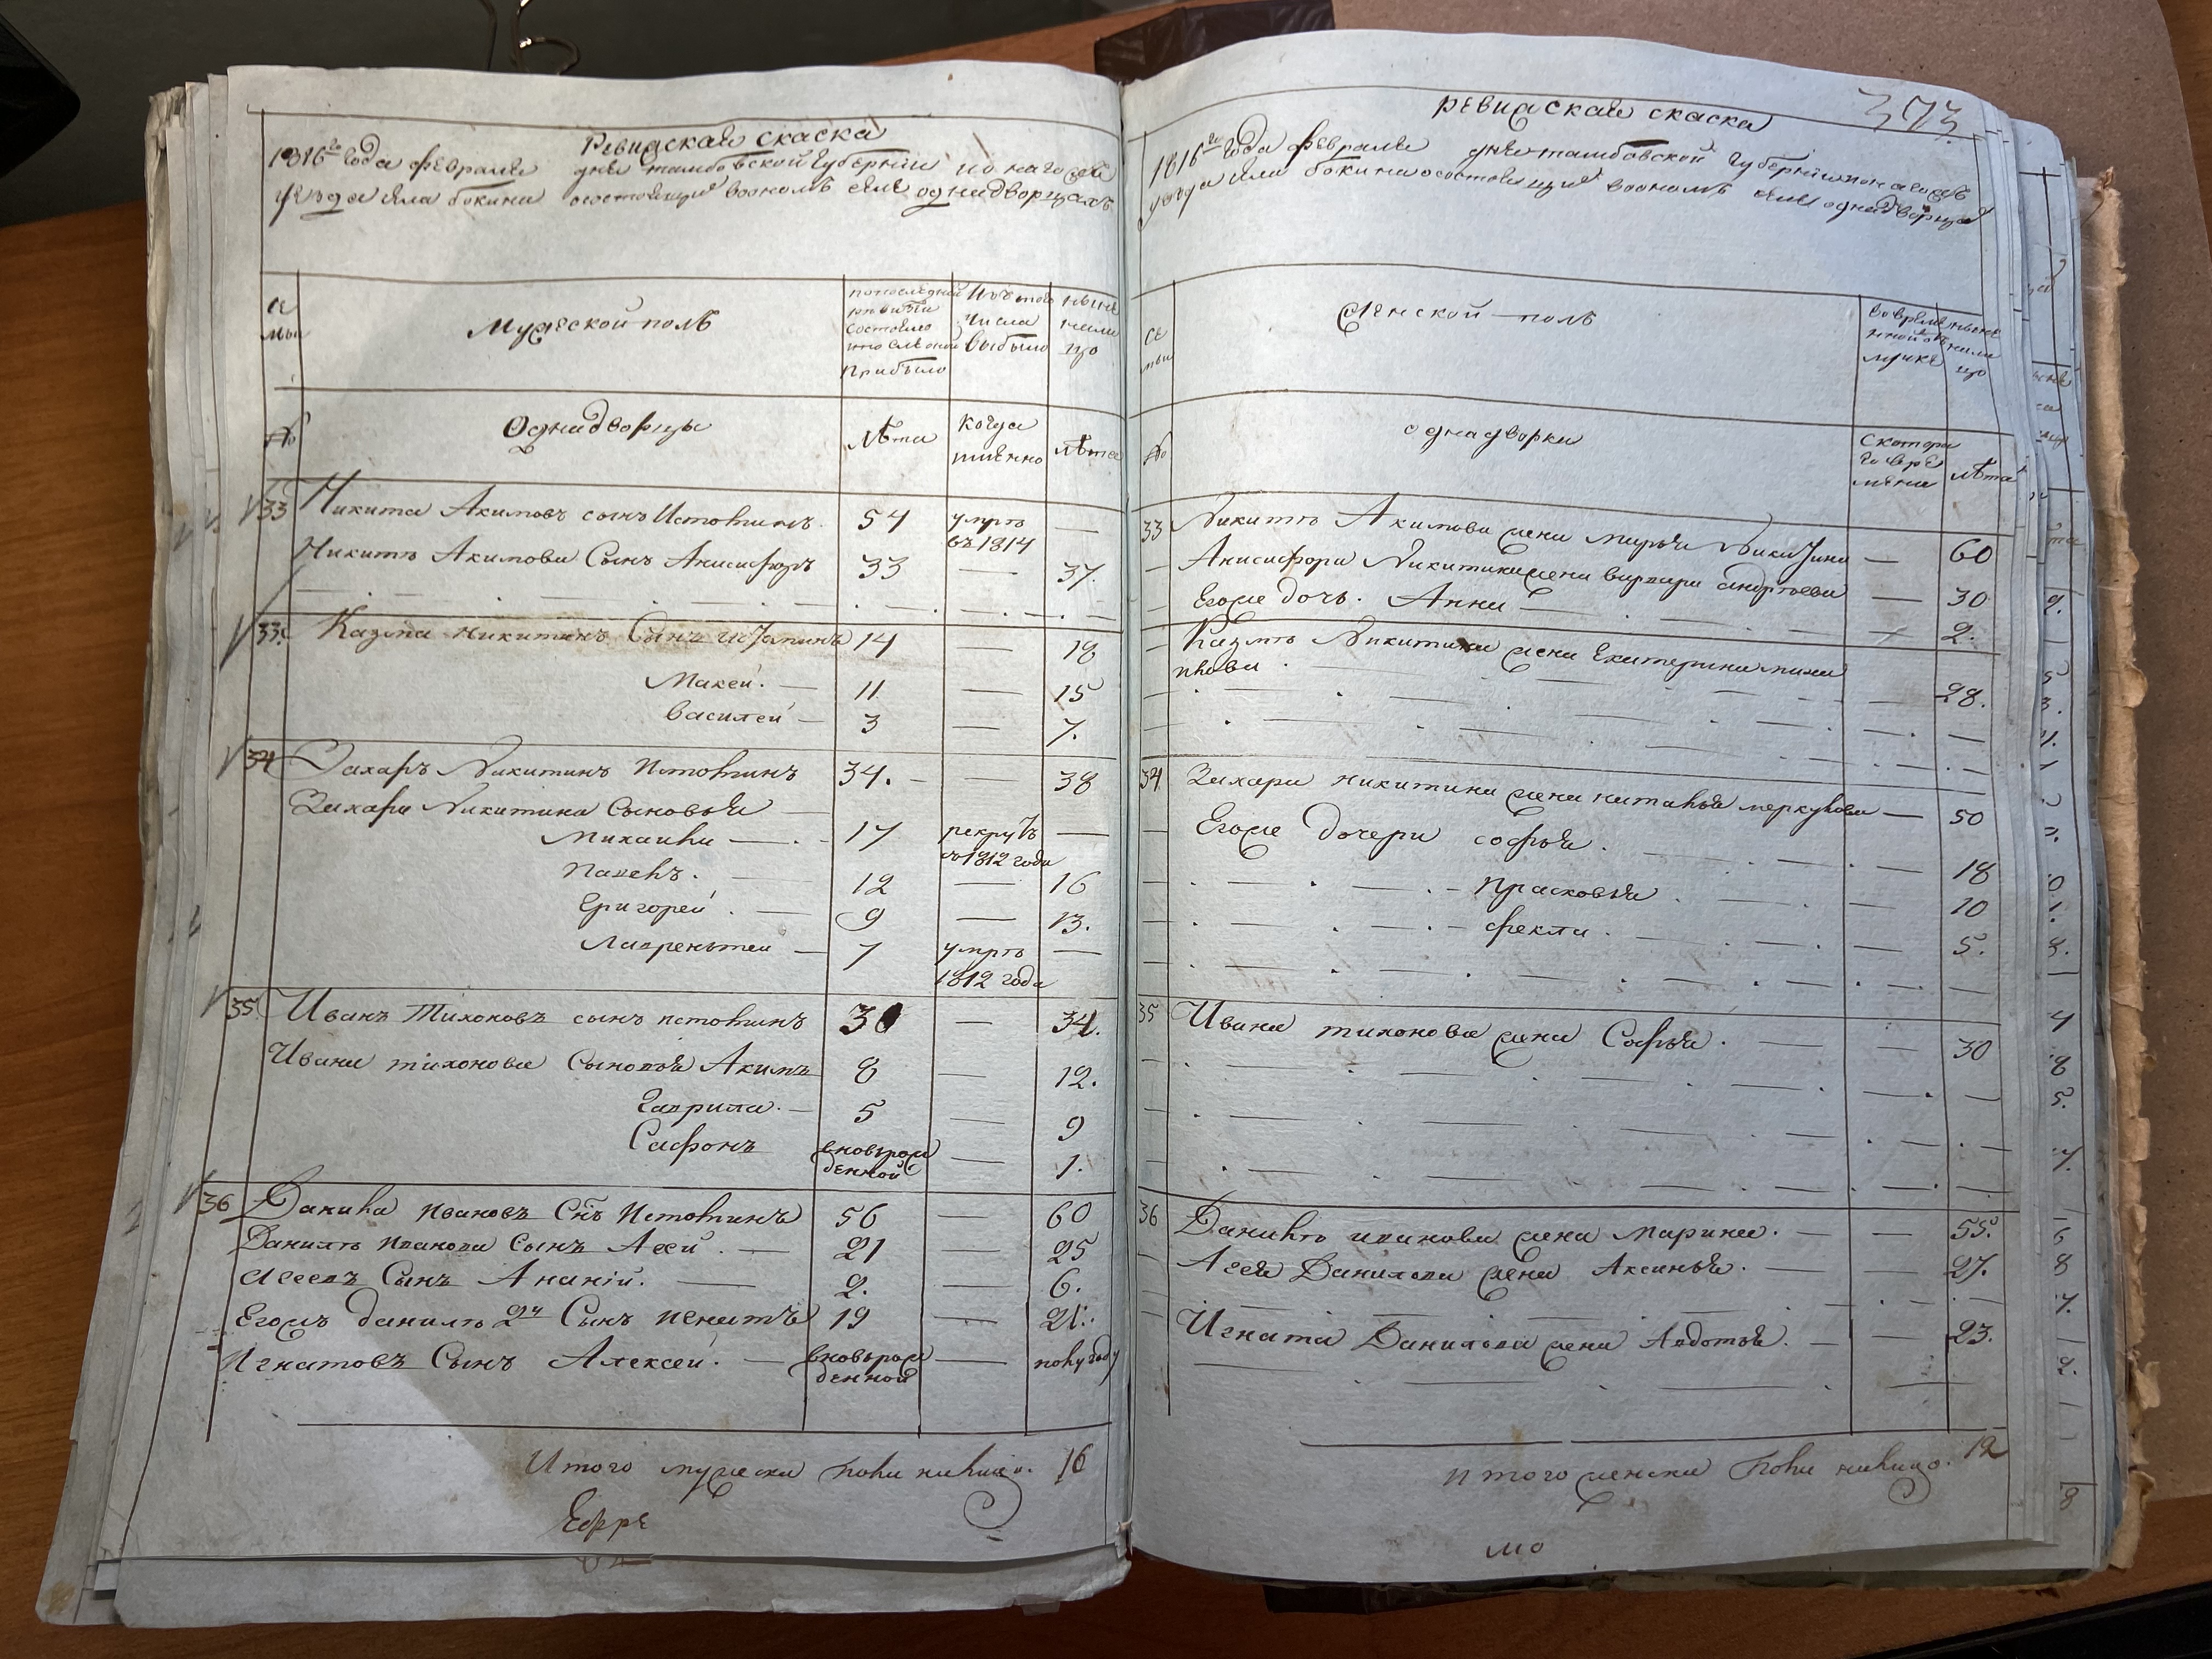 Ревицская скаска
1816го года февраля дня тамбовской губернии
уезда села бокина однадворцахъ
се
мьи
Мужеской полъ
по последней
ревизии
состояло
и после оной
прибыло
Изъ того
числа
выбыло
ныне
нали
цо
№
Однидворцы
лѣта
когда
имянно
лѣта
33 Никита Акимовъ сынъ Истоминъ 54 умре въ 1814 —
Никиты Акимова Сынъ Анисифоръ 33 — 37.
33. Казма никитинъ Сынъ истоминъ 14 — 18
Макей. — 11 — 15
василей — 3 — 7.
34 Захаръ Никитинъ Истоминъ 34. — — 38
Захара Никитина Сыновья —
Михаила — 17 рекрутъ съ 1812 года —
Павелъ. — 12 — 16
Григорей. — 9 — 13.
Лаврентей — 7 умре 1812 года —
35 Иванъ Тихоновъ сынъ истоминъ 30 — 34.
Ивана тихонова Сыновья Акимъ 8 — 12.
Гаврила. — 5 — 9
Сафонъ вновьрож
денной — 1.
36 Данила ивановъ Снъ Истоминъ 56 — 60
Данилы иванова Сынъ Агей. — 21 — 25
Агеевъ Сынъ Ананiй. — 2. — 6.
Егожъ данилы 2й Сынъ игнатъ 19 — 21.
Игнатовъ Сынъ Алексей. — вновьрож
денной — полугоду
Итого мужеска пола налицо. 16
Ефре
373
ревицская скаска
1816го года февраля дня тамбовской губернии
уезда села бокина состоящихъ воономъ селе однадворца
се
мьи
Женской полъ
во време
нной от
лучке
ныне
нали
цо
№
однадворки
Скотора
го вре
мени
лѣта
33 Никиты Акимова жена марья — 60
Анисифора Никитина жена варвара андреева — 30
Егоже дочь. Анна — 2.
Казмы Никитина жена Екатерина михаи
лова. 28.
34 Захара никитина жена наталья меркулова — 50
Егоже дочери софья. 18
Прасковья. — 10
фекла. — 5.
35 Ивана тихонова жена Софья. — — 30
36 Данилы иванова жена марина. — — 55.
Агея Данилова жена Аксинья. — — 27.
Игната Данилова жена Авдотья. — — 23.
итого женска пола налицо. 12
мо